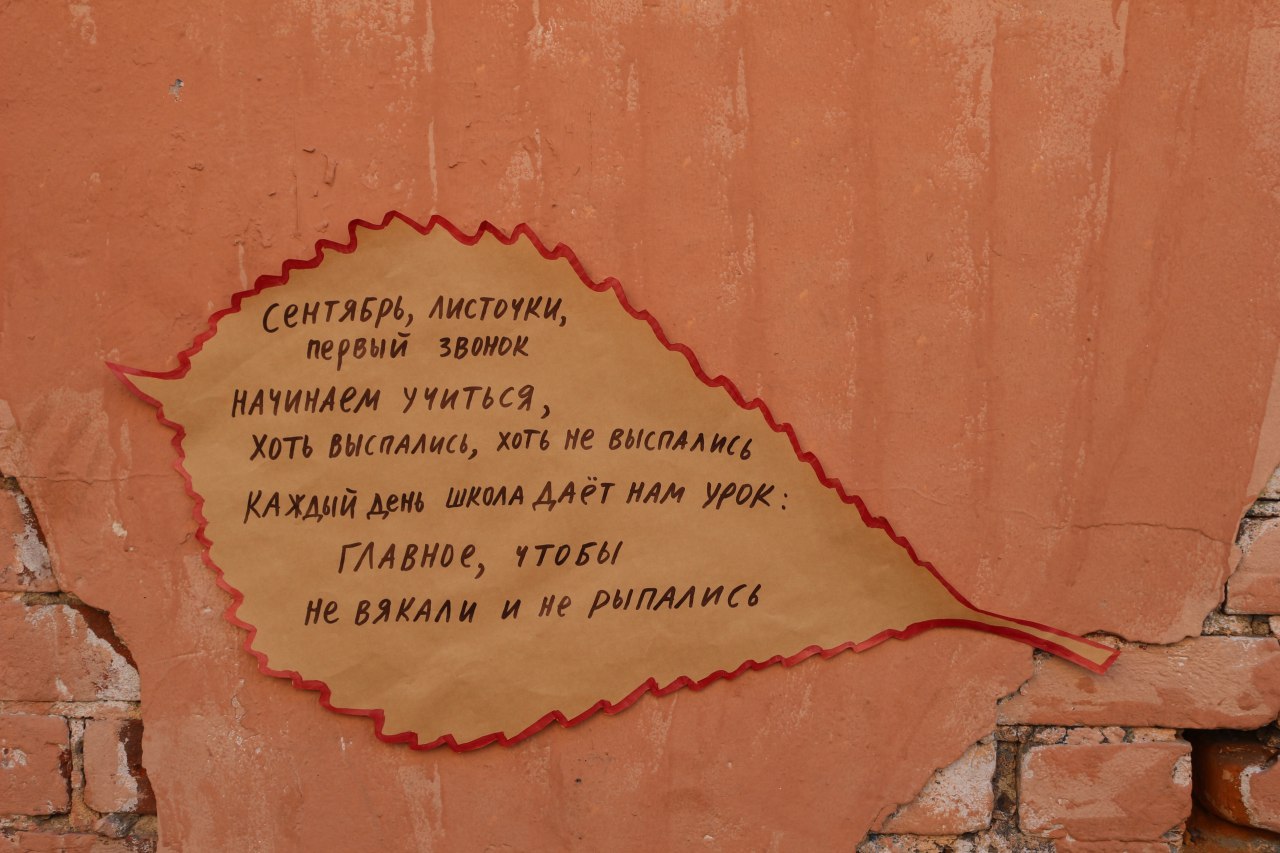 Сентябрь, листочки,
первый звонок
Начинаем учиться,
хоть выспались, хоть не выспались
Каждый день школа даёт нам урок:
Главное, чтобы
не вякали и не рыпались